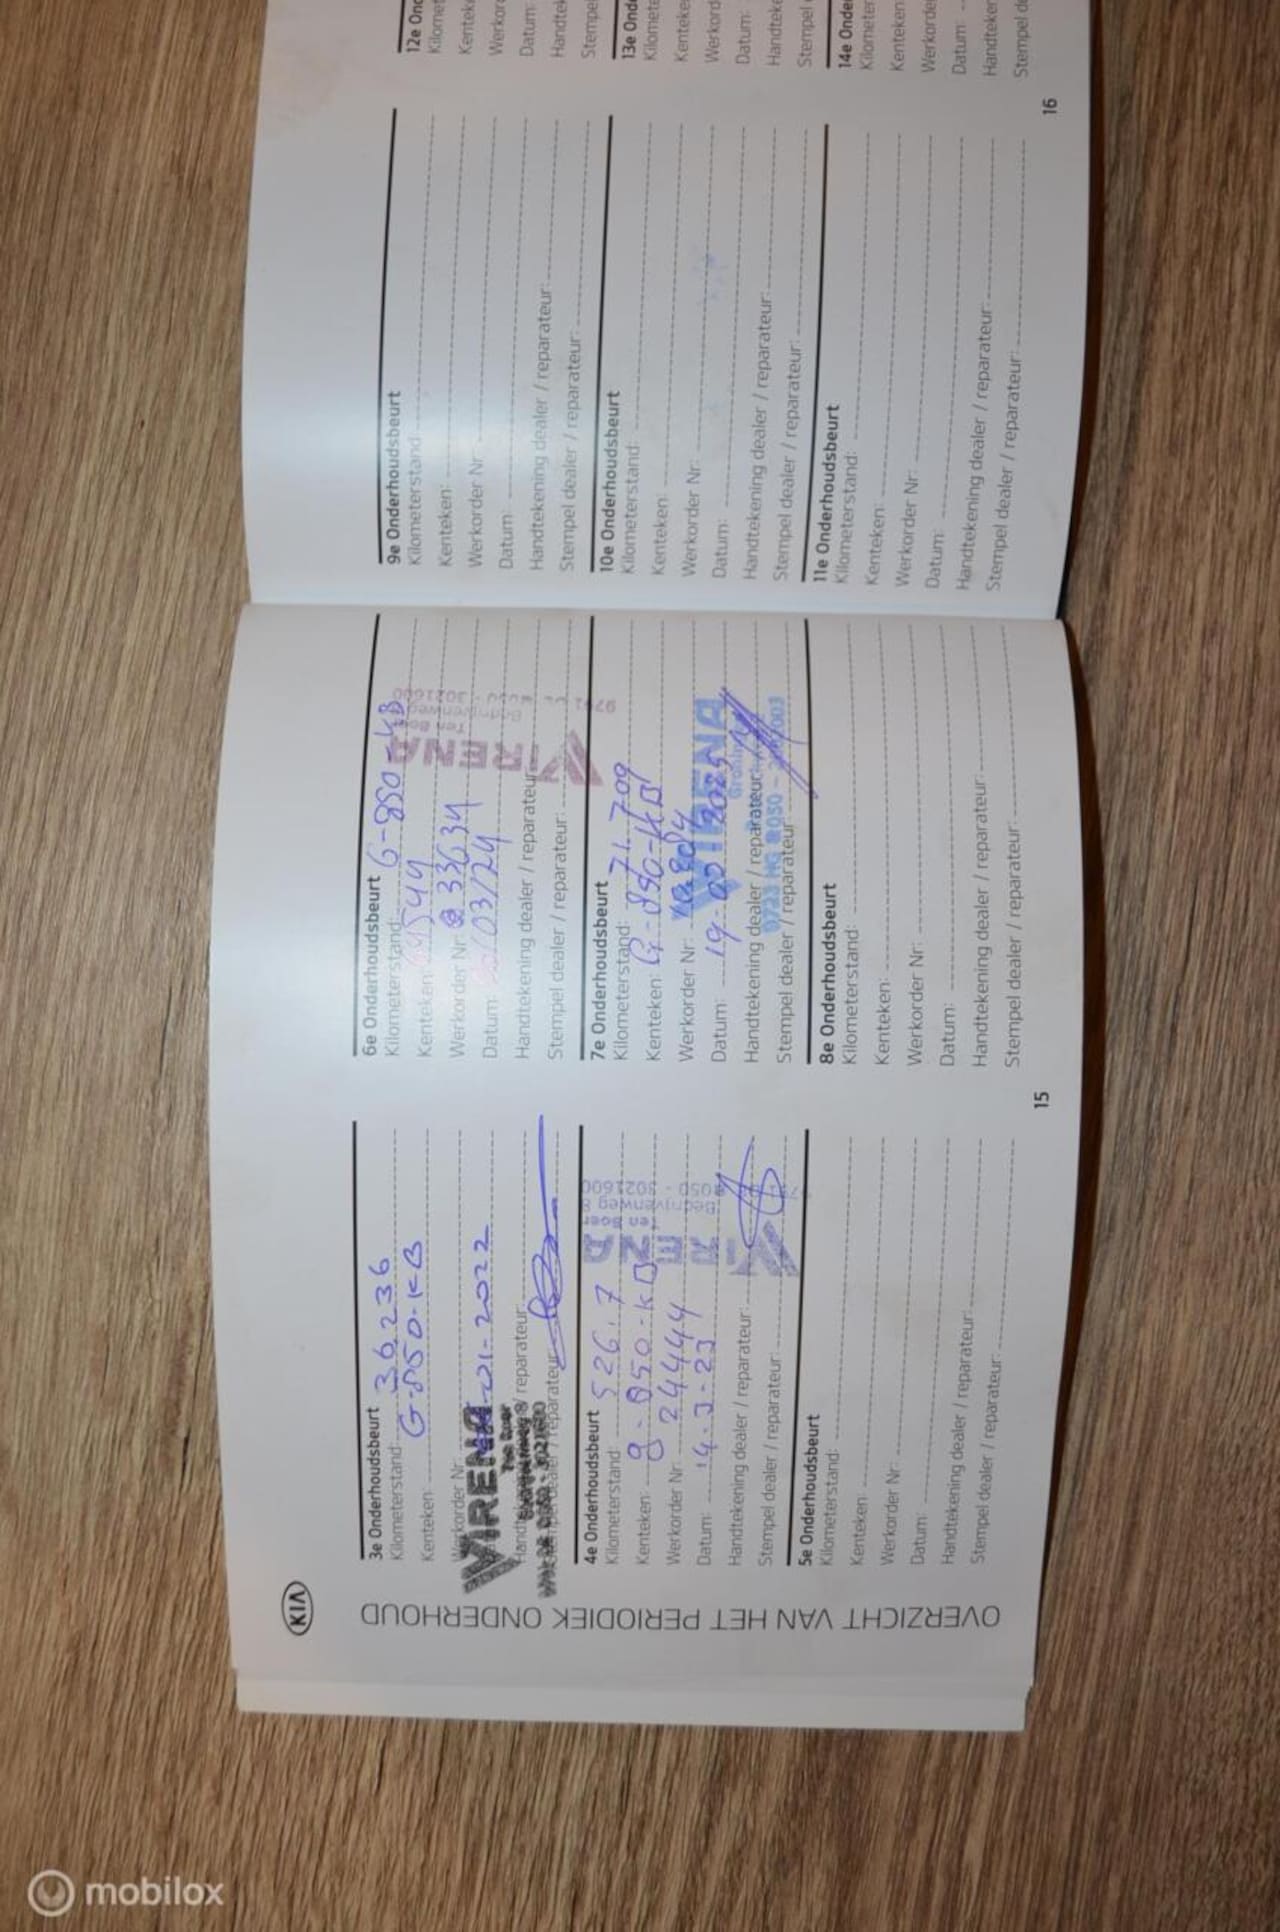 KIA
OVERZICHT VAN HET PERIODIEK ONDERHOUD
3e Onderhoudsbeurt
Kilometerstand: 36236
Kenteken: G-850-KB
Werkorder Nr:
01-2022
reparateur:
reparateur:
VIRENA
Ten Boer
Bedrijvenweg 8
050 - 3021600
4e Onderhoudsbeurt
Kilometerstand: 52617
Kenteken: G-850-KB
Werkorder Nr: 24444
Datum: 14-3-23
Handtekening dealer / reparateur:
Stempel dealer / reparateur:
VIRENA
Ten Boer
Bedrijvenweg 8
9791 050 - 3021600
5e Onderhoudsbeurt
Kilometerstand:
Kenteken:
Werkorder Nr:
Datum:
Handtekening dealer / reparateur:
Stempel dealer / reparateur:
6e Onderhoudsbeurt G-850-KB
Kilometerstand:
Kenteken:
Werkorder Nr: 33634
Datum: /03/24
Handtekening dealer / reparateur:
Stempel dealer / reparateur:
VIRENA
Ten Boer
Bedrijvenweg
9791 - 3021600
7e Onderhoudsbeurt
Kilometerstand: 71.709
Kenteken: G-850-KB
Werkorder Nr:
Datum: 19
Handtekening dealer / reparateur:
Stempel dealer / reparateur:
VIRENA
Groningen
9723 HG 050 -
8e Onderhoudsbeurt
Kilometerstand:
Kenteken:
Werkorder Nr:
Datum:
Handtekening dealer / reparateur:
Stempel dealer / reparateur:
15
9e Onderhoudsbeurt
Kilometerstand
Kenteken:
Werkorder Nr:
Datum:
Handtekening dealer / reparateur:
Stempel dealer / reparateur:
10e Onderhoudsbeurt
Kilometerstand:
Kenteken:
Werkorder Nr:
Datum:
Handtekening dealer / reparateur:
Stempel dealer / reparateur:
11e Onderhoudsbeurt
Kilometerstand:
Kenteken:
Werkorder Nr:
Datum:
Handtekening dealer / reparateur:
Stempel dealer / reparateur:
16
12e Ond
Kilomet
Kenteke
Werkord
Datum:
Handtek
Stempel
13e Onde
Kilomete
Kenteken
Werkord
Datum:
Handteke
Stempel
14e Onder
Kilometer
Kenteken
Werkorde
Datum:
Handteken
Stempel de
mobilox